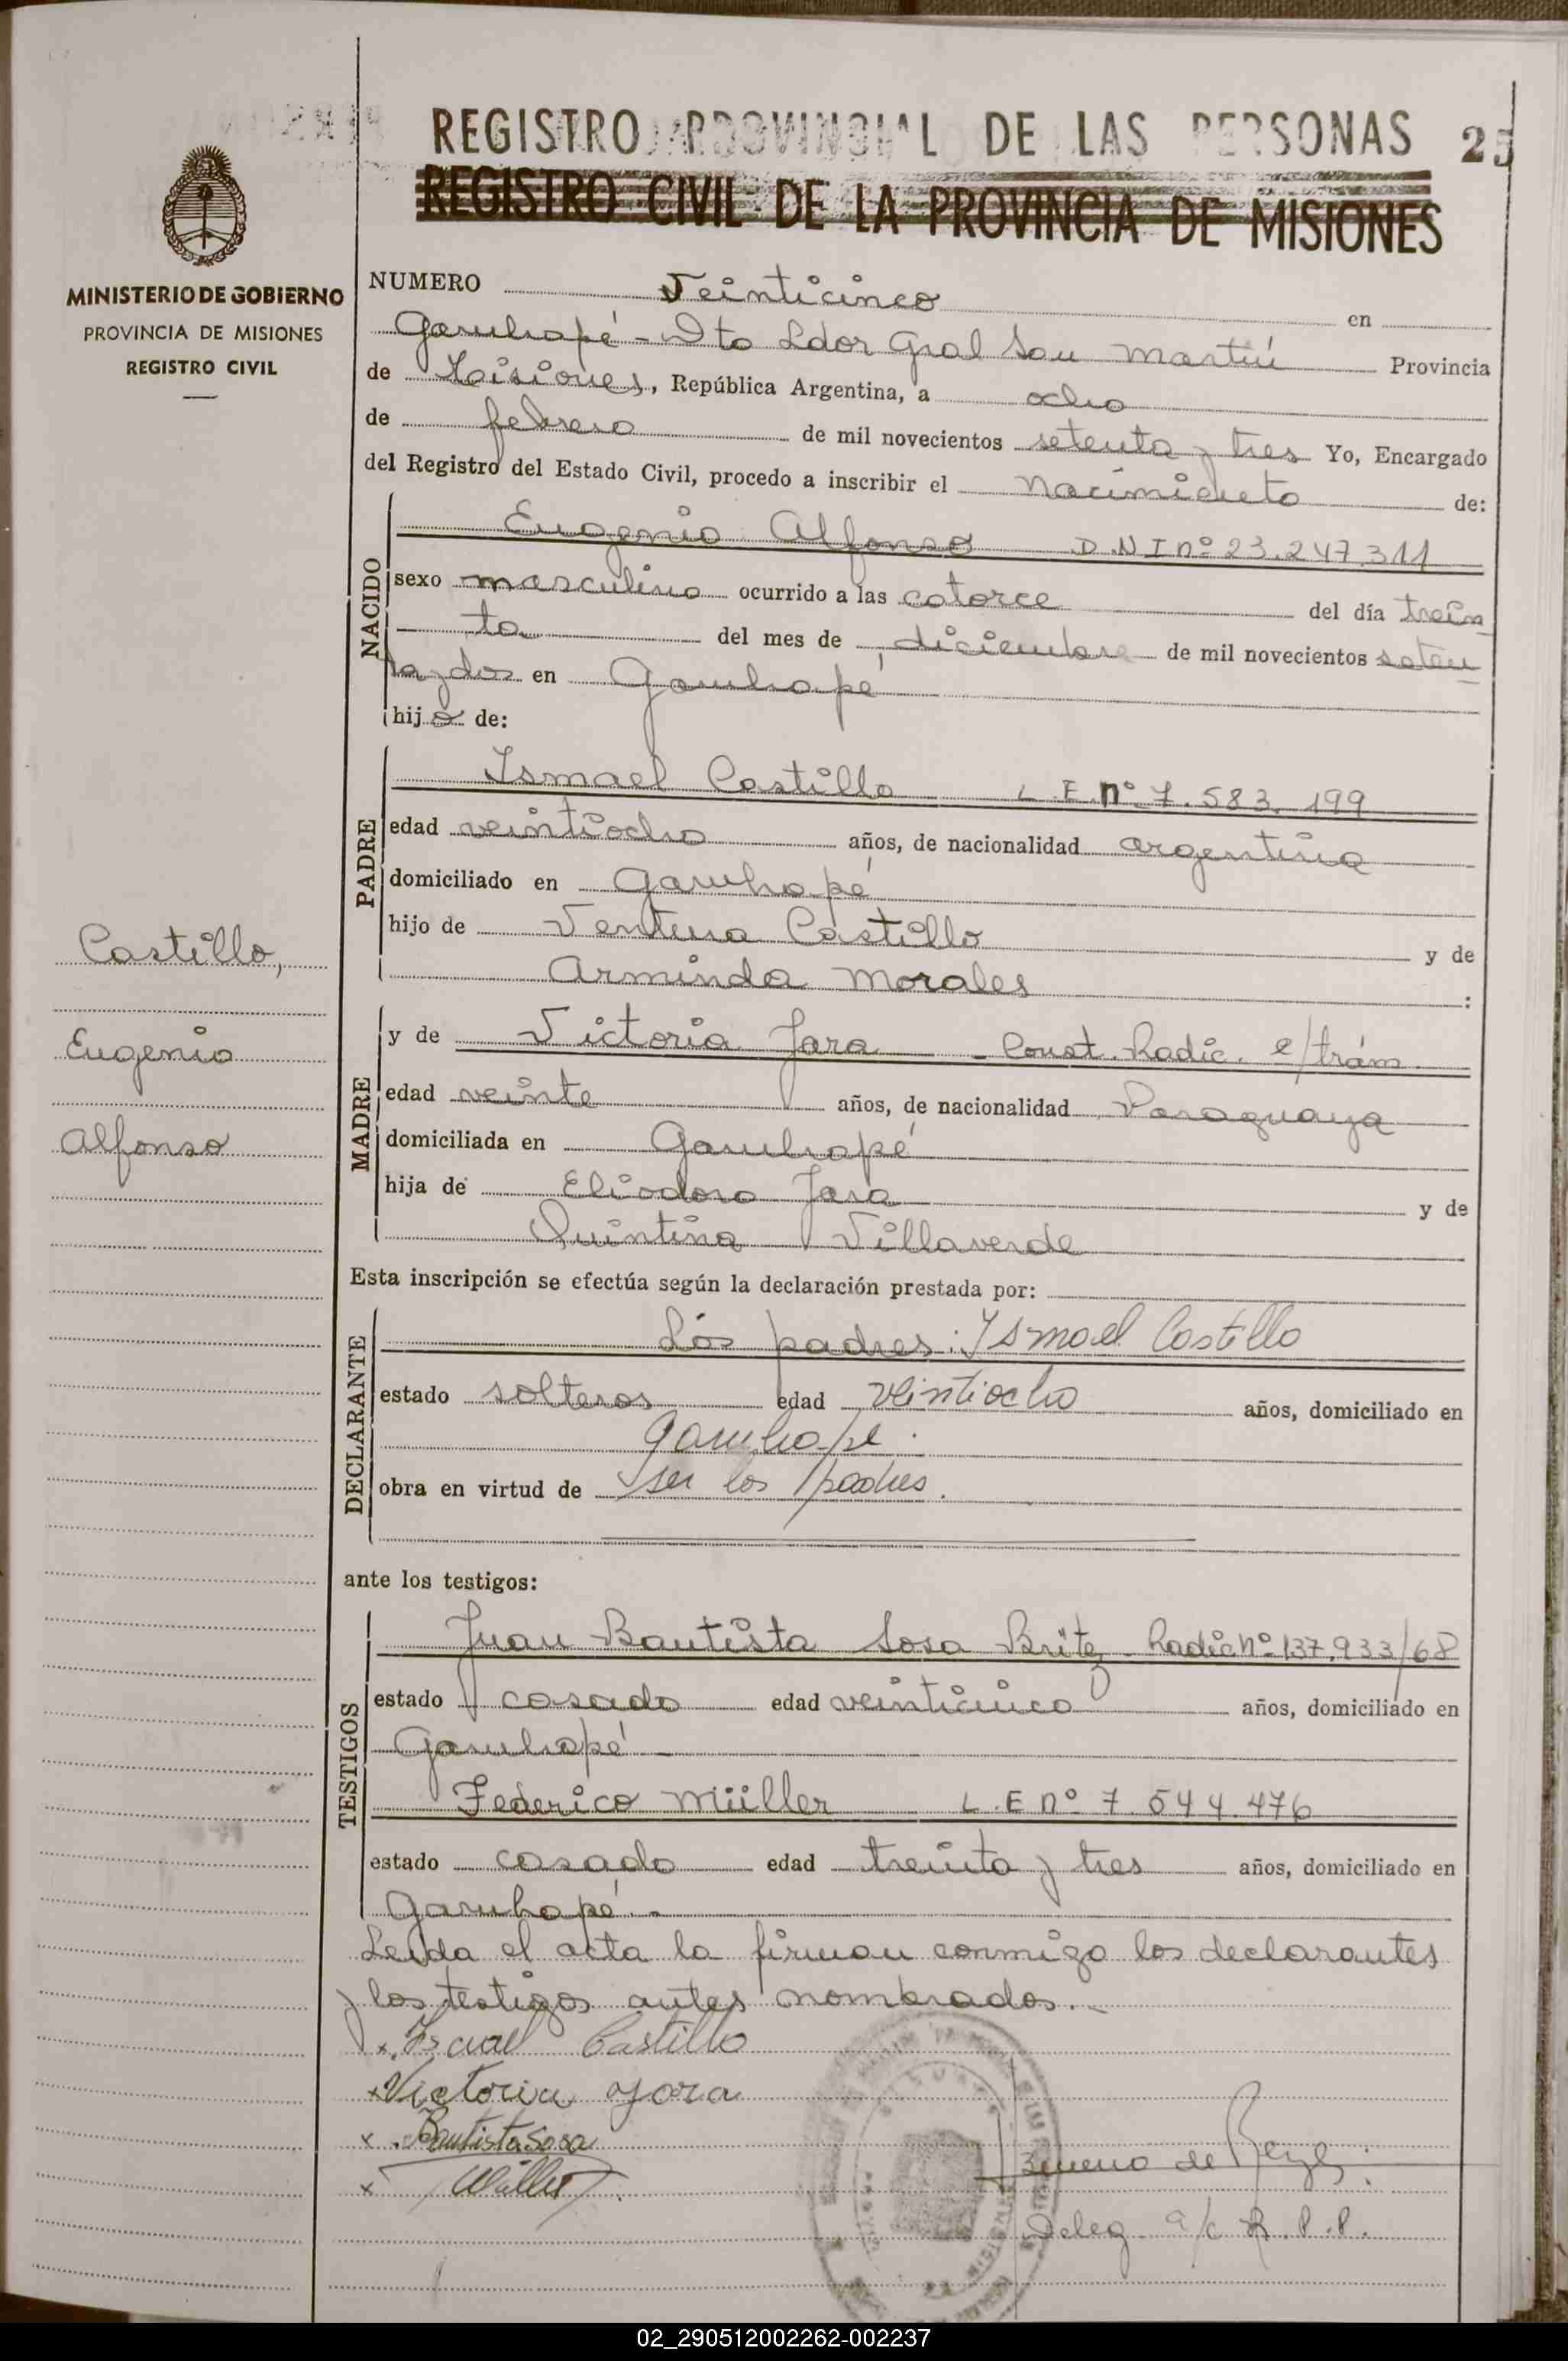 REGISTRO PROVINCIAL DE LAS PERSONAS 25
REGISTRO CIVIL DE LA PROVINCIA DE MISIONES
MINISTERIO DE GOBIERNO
PROVINCIA DE MISIONES
REGISTRO CIVIL
NUMERO Veinticinco en
Garuhapé - Dto Ldor Gral San Martín Provincia
de Misiones, República Argentina, a ocho
de febrero de mil novecientos setenta y tres Yo, Encargado
del Registro del Estado Civil, procedo a inscribir el nacimiento de:
NACIDO
Eugenio Alfonso D.N.I nº 23.247.311
sexo masculino ocurrido a las catorce del día trein
ta del mes de diciembre de mil novecientos seten
ta y dos en Garuhapé
hijo de:
PADRE
Ismael Castillo L.E. nº 7.583.199
edad veintiocho años, de nacionalidad argentina
domiciliado en Garuhapé
hijo de Ventura Castillo y de
Arminda Morales :
Castillo,
Eugenio
Alfonso
MADRE
y de Victoria Jara - Const. Radic. e/trám.
edad veinte años, de nacionalidad Paraguaya
domiciliada en Garuhapé
hija de Eliodoro Jara y de
Quintina Villaverde
Esta inscripción se efectúa según la declaración prestada por:
DECLARANTE
Los padres: Ismael Castillo
estado solteros edad veintiocho años, domiciliado en
Garuhapé.
obra en virtud de ser los padres.
ante los testigos:
TESTIGOS
Juan Bautista Sosa Britez - Radic nº 137.933/68
estado casado edad veinticinco años, domiciliado en
Garuhapé -
Federico Müller L.E nº 7.544.476
estado casado edad treinta y tres años, domiciliado en
Garuhapé. -
Leída el acta la firman conmigo los declarantes
y los testigos antes nombrados. -
x. Ismael Castillo
x Victoria Jara
x. Bautista Sosa
x Müller
de
Deleg. a/c R.P.P.
02_290512002262-002237